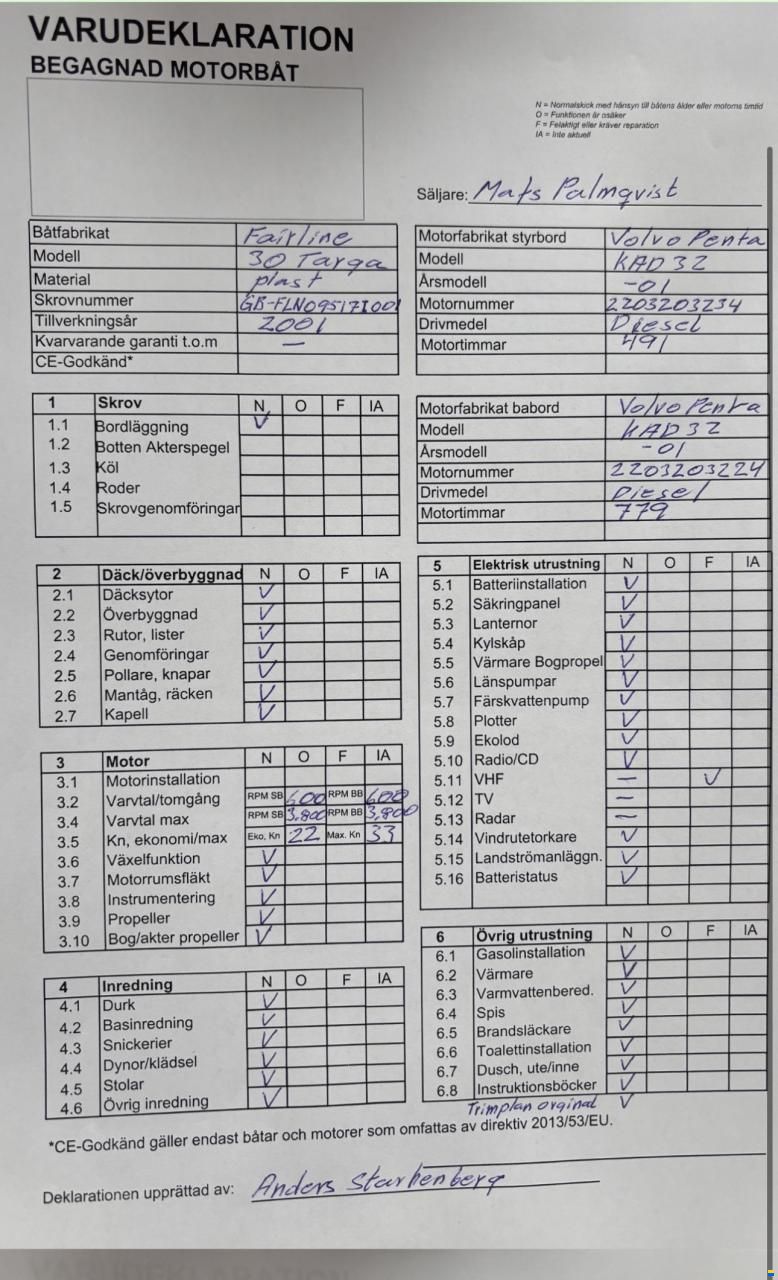 VARUDEKLARATION
BEGAGNAD MOTORBÅT
N = Normalskick med hänsyn till båtens ålder eller motorns timtid
O = Funktionen är osäker
F = Felaktigt eller kräver reparation
IA = Inte aktuell
Säljare: Mats Palmqvist
Båtfabrikat Fairline
Modell 30 Targa
Material plast
Skrovnummer GB-FLN09517I001
Tillverkningsår 2001
Kvarvarande garanti t.o.m —
CE-Godkänd*
Motorfabrikat styrbord Volvo Penta
Modell KAD 32
Årsmodell -01
Motornummer 2203203234
Drivmedel Diesel
Motortimmar 491
1 Skrov N O F IA
1.1 Bordläggning V
1.2 Botten Akterspegel
1.3 Köl
1.4 Roder
1.5 Skrovgenomföringar
Motorfabrikat babord Volvo Penta
Modell KAD 32
Årsmodell -01
Motornummer 2203203224
Drivmedel Diesel
Motortimmar 779
2 Däck/överbyggnad N O F IA
2.1 Däcksytor V
2.2 Överbyggnad V
2.3 Rutor, lister V
2.4 Genomföringar V
2.5 Pollare, knapar V
2.6 Mantåg, räcken V
2.7 Kapell V
3 Motor N O F IA
3.1 Motorinstallation
3.2 Varvtal/tomgång RPM SB 600 RPM BB 600
3.4 Varvtal max RPM SB 3,800 RPM BB 3,800
3.5 Kn, ekonomi/max Eko, Kn 22 Max. Kn 33
3.6 Växelfunktion V
3.7 Motorrumsfläkt V
3.8 Instrumentering V
3.9 Propeller V
3.10 Bog/akter propeller V
4 Inredning N O F IA
4.1 Durk V
4.2 Basinredning V
4.3 Snickerier V
4.4 Dynor/klädsel V
4.5 Stolar V
4.6 Övrig inredning V
5 Elektrisk utrustning N O F IA
5.1 Batteriinstallation V
5.2 Säkringpanel V
5.3 Lanternor V
5.4 Kylskåp V
5.5 Värmare Bogpropel V
5.6 Länspumpar V
5.7 Färskvattenpump V
5.8 Plotter V
5.9 Ekolod V
5.10 Radio/CD V
5.11 VHF — V
5.12 TV —
5.13 Radar —
5.14 Vindrutetorkare V
5.15 Landströmanläggn. V
5.16 Batteristatus V
6 Övrig utrustning N O F IA
6.1 Gasolinstallation V
6.2 Värmare V
6.3 Varmvattenbered. V
6.4 Spis V
6.5 Brandsläckare V
6.6 Toalettinstallation V
6.7 Dusch, ute/inne V
6.8 Instruktionsböcker V
Trimplan orginal V
*CE-Godkänd gäller endast båtar och motorer som omfattas av direktiv 2013/53/EU.
Deklarationen upprättad av: Anders Starkenberg